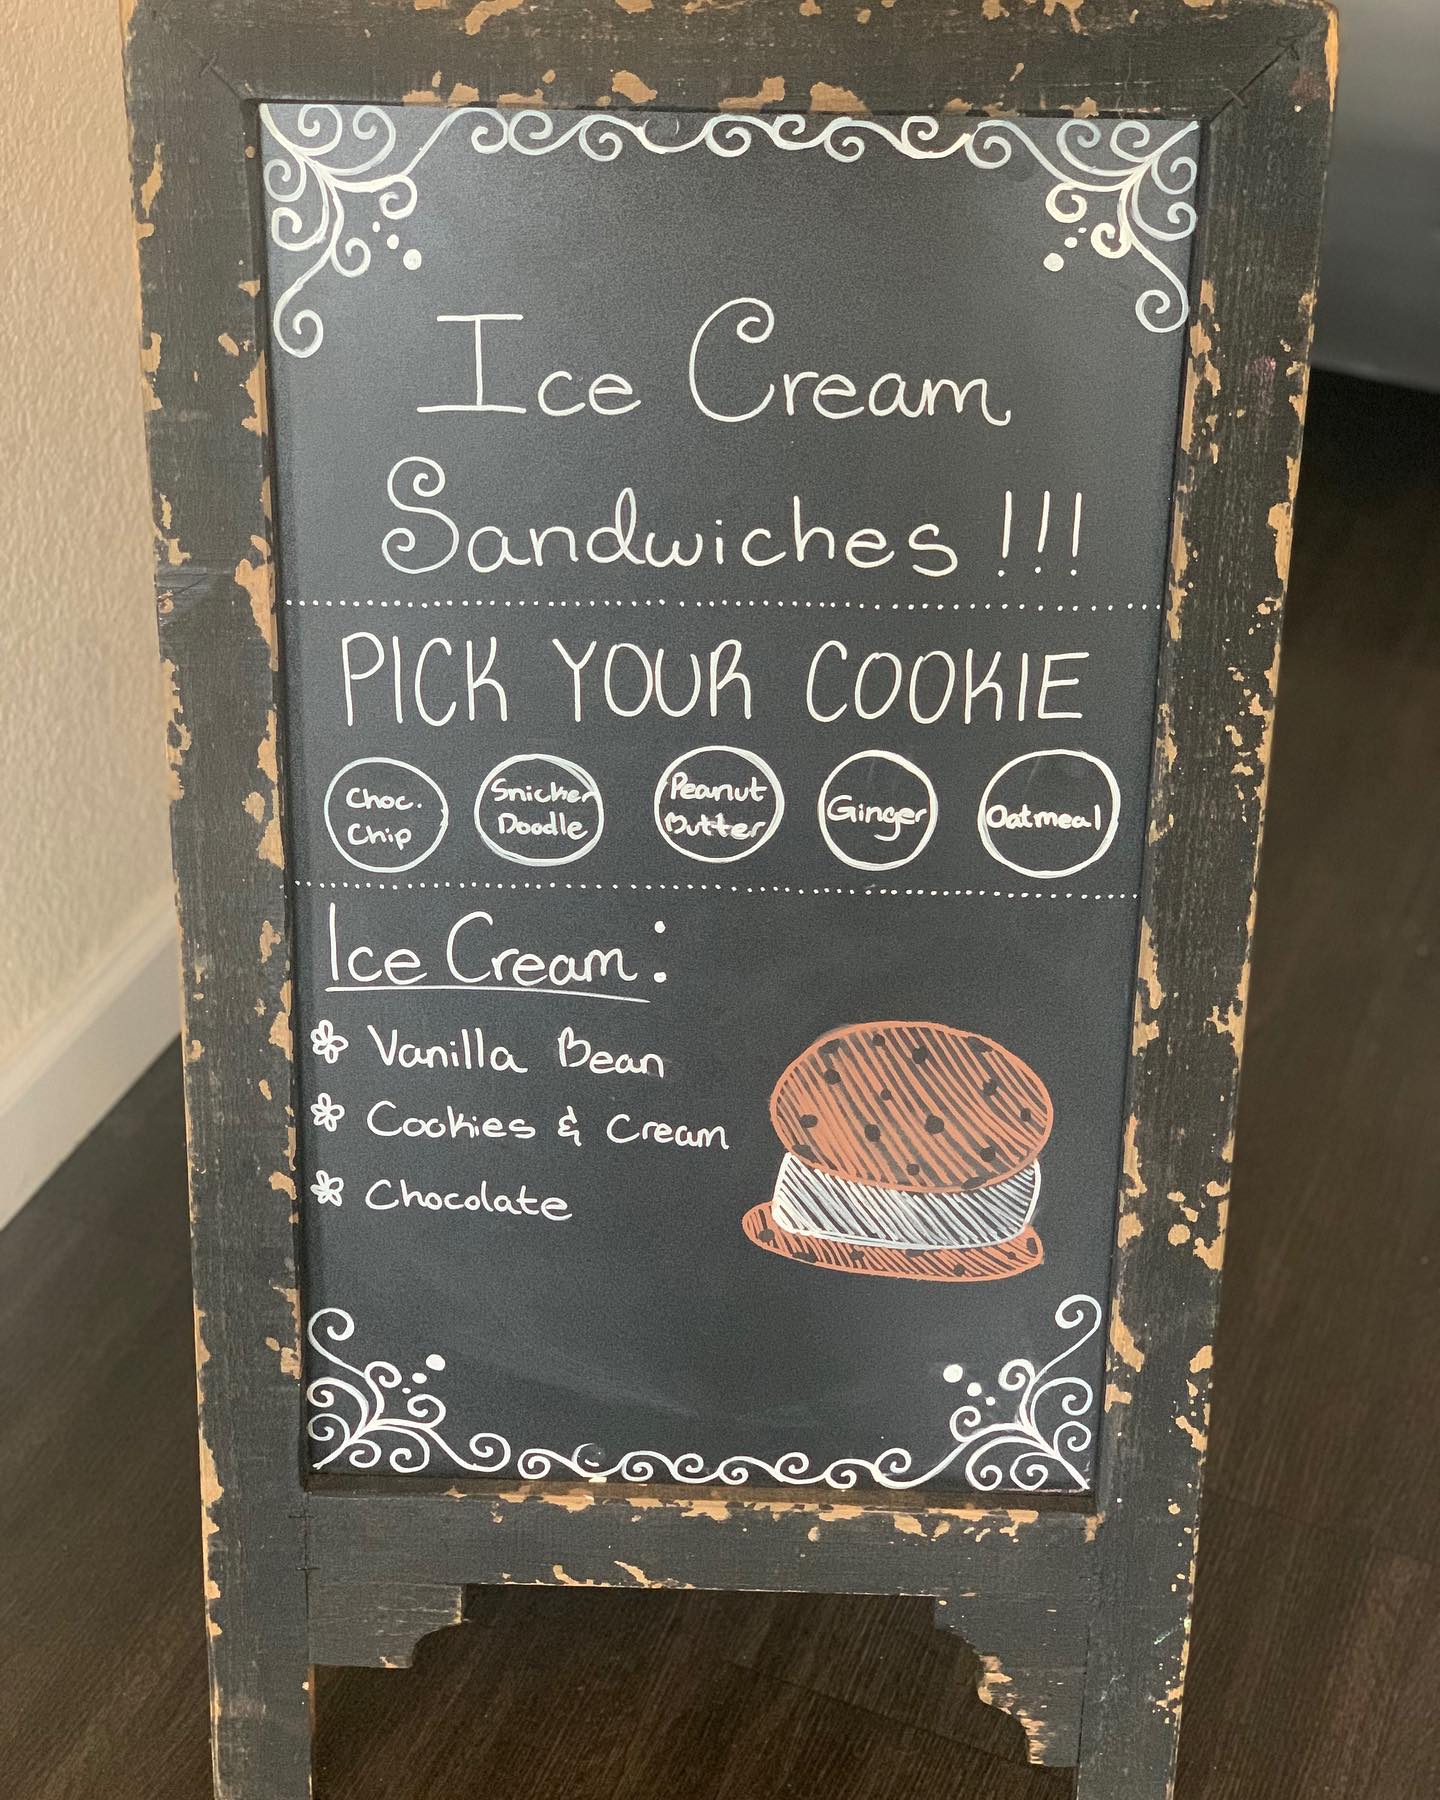 Ice Cream
Sandwiches !!!
PICK YOUR COOKIE
Choc.
Chip
Snicker
Doodle
Peanut
Butter
Ginger
Oatmeal
Ice Cream:
Vanilla Bean
Cookies & Cream
Chocolate